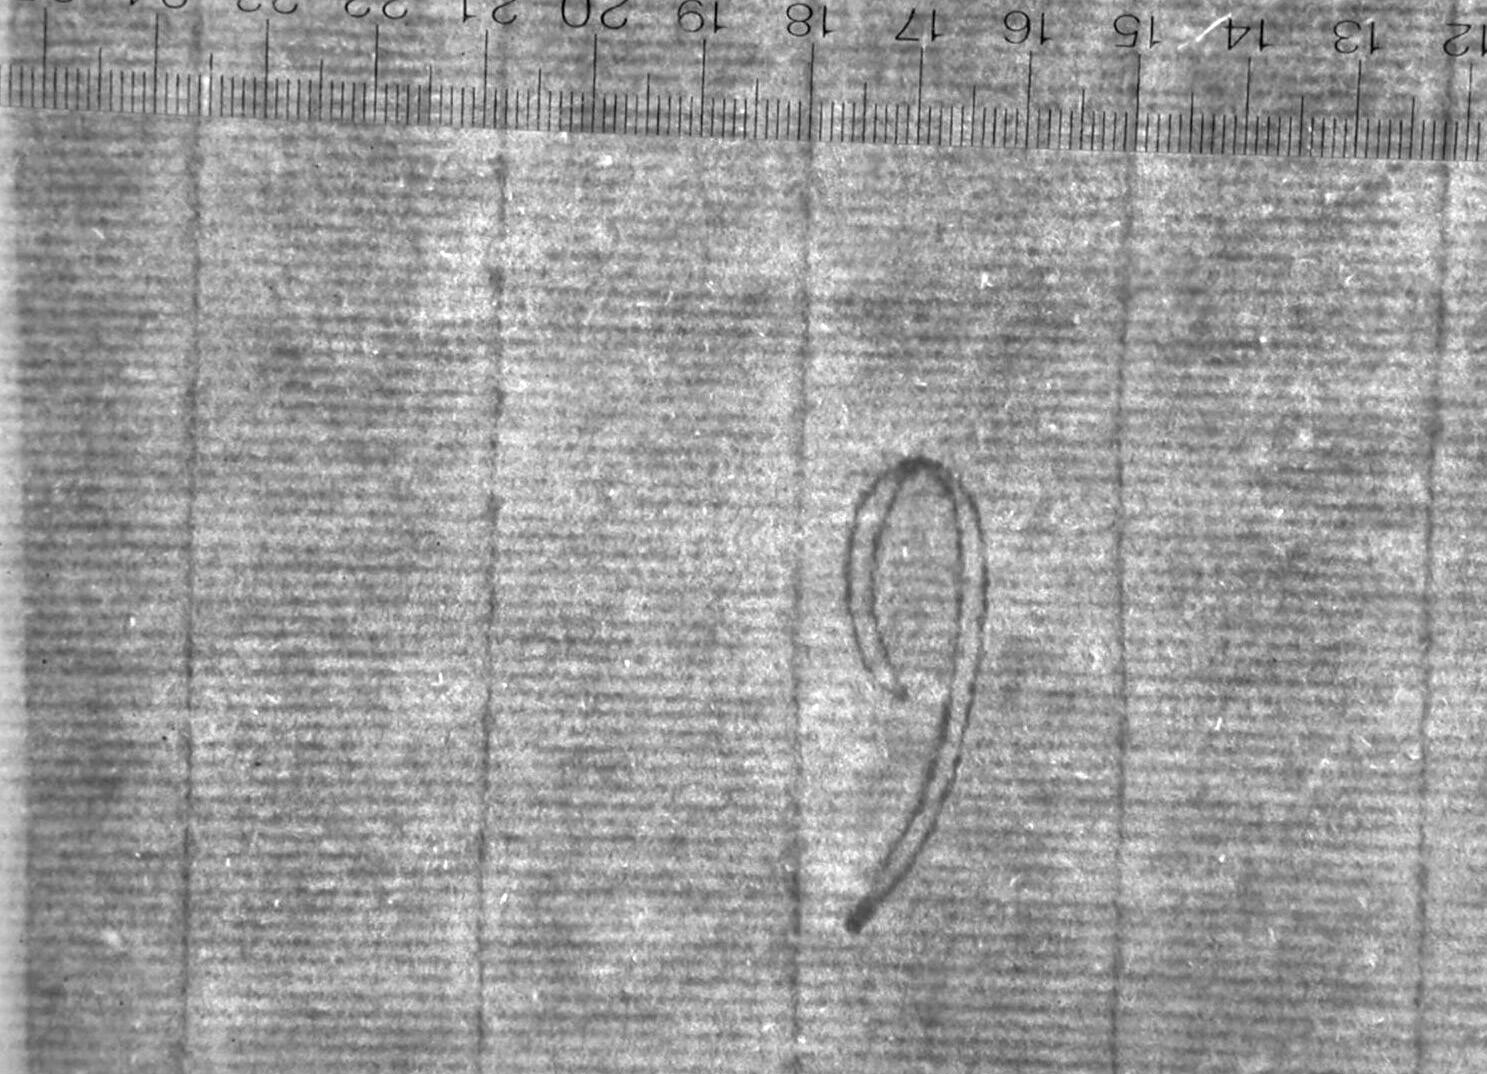 12 13 14 15 16 17 18 19 20 21 22 23 24 25